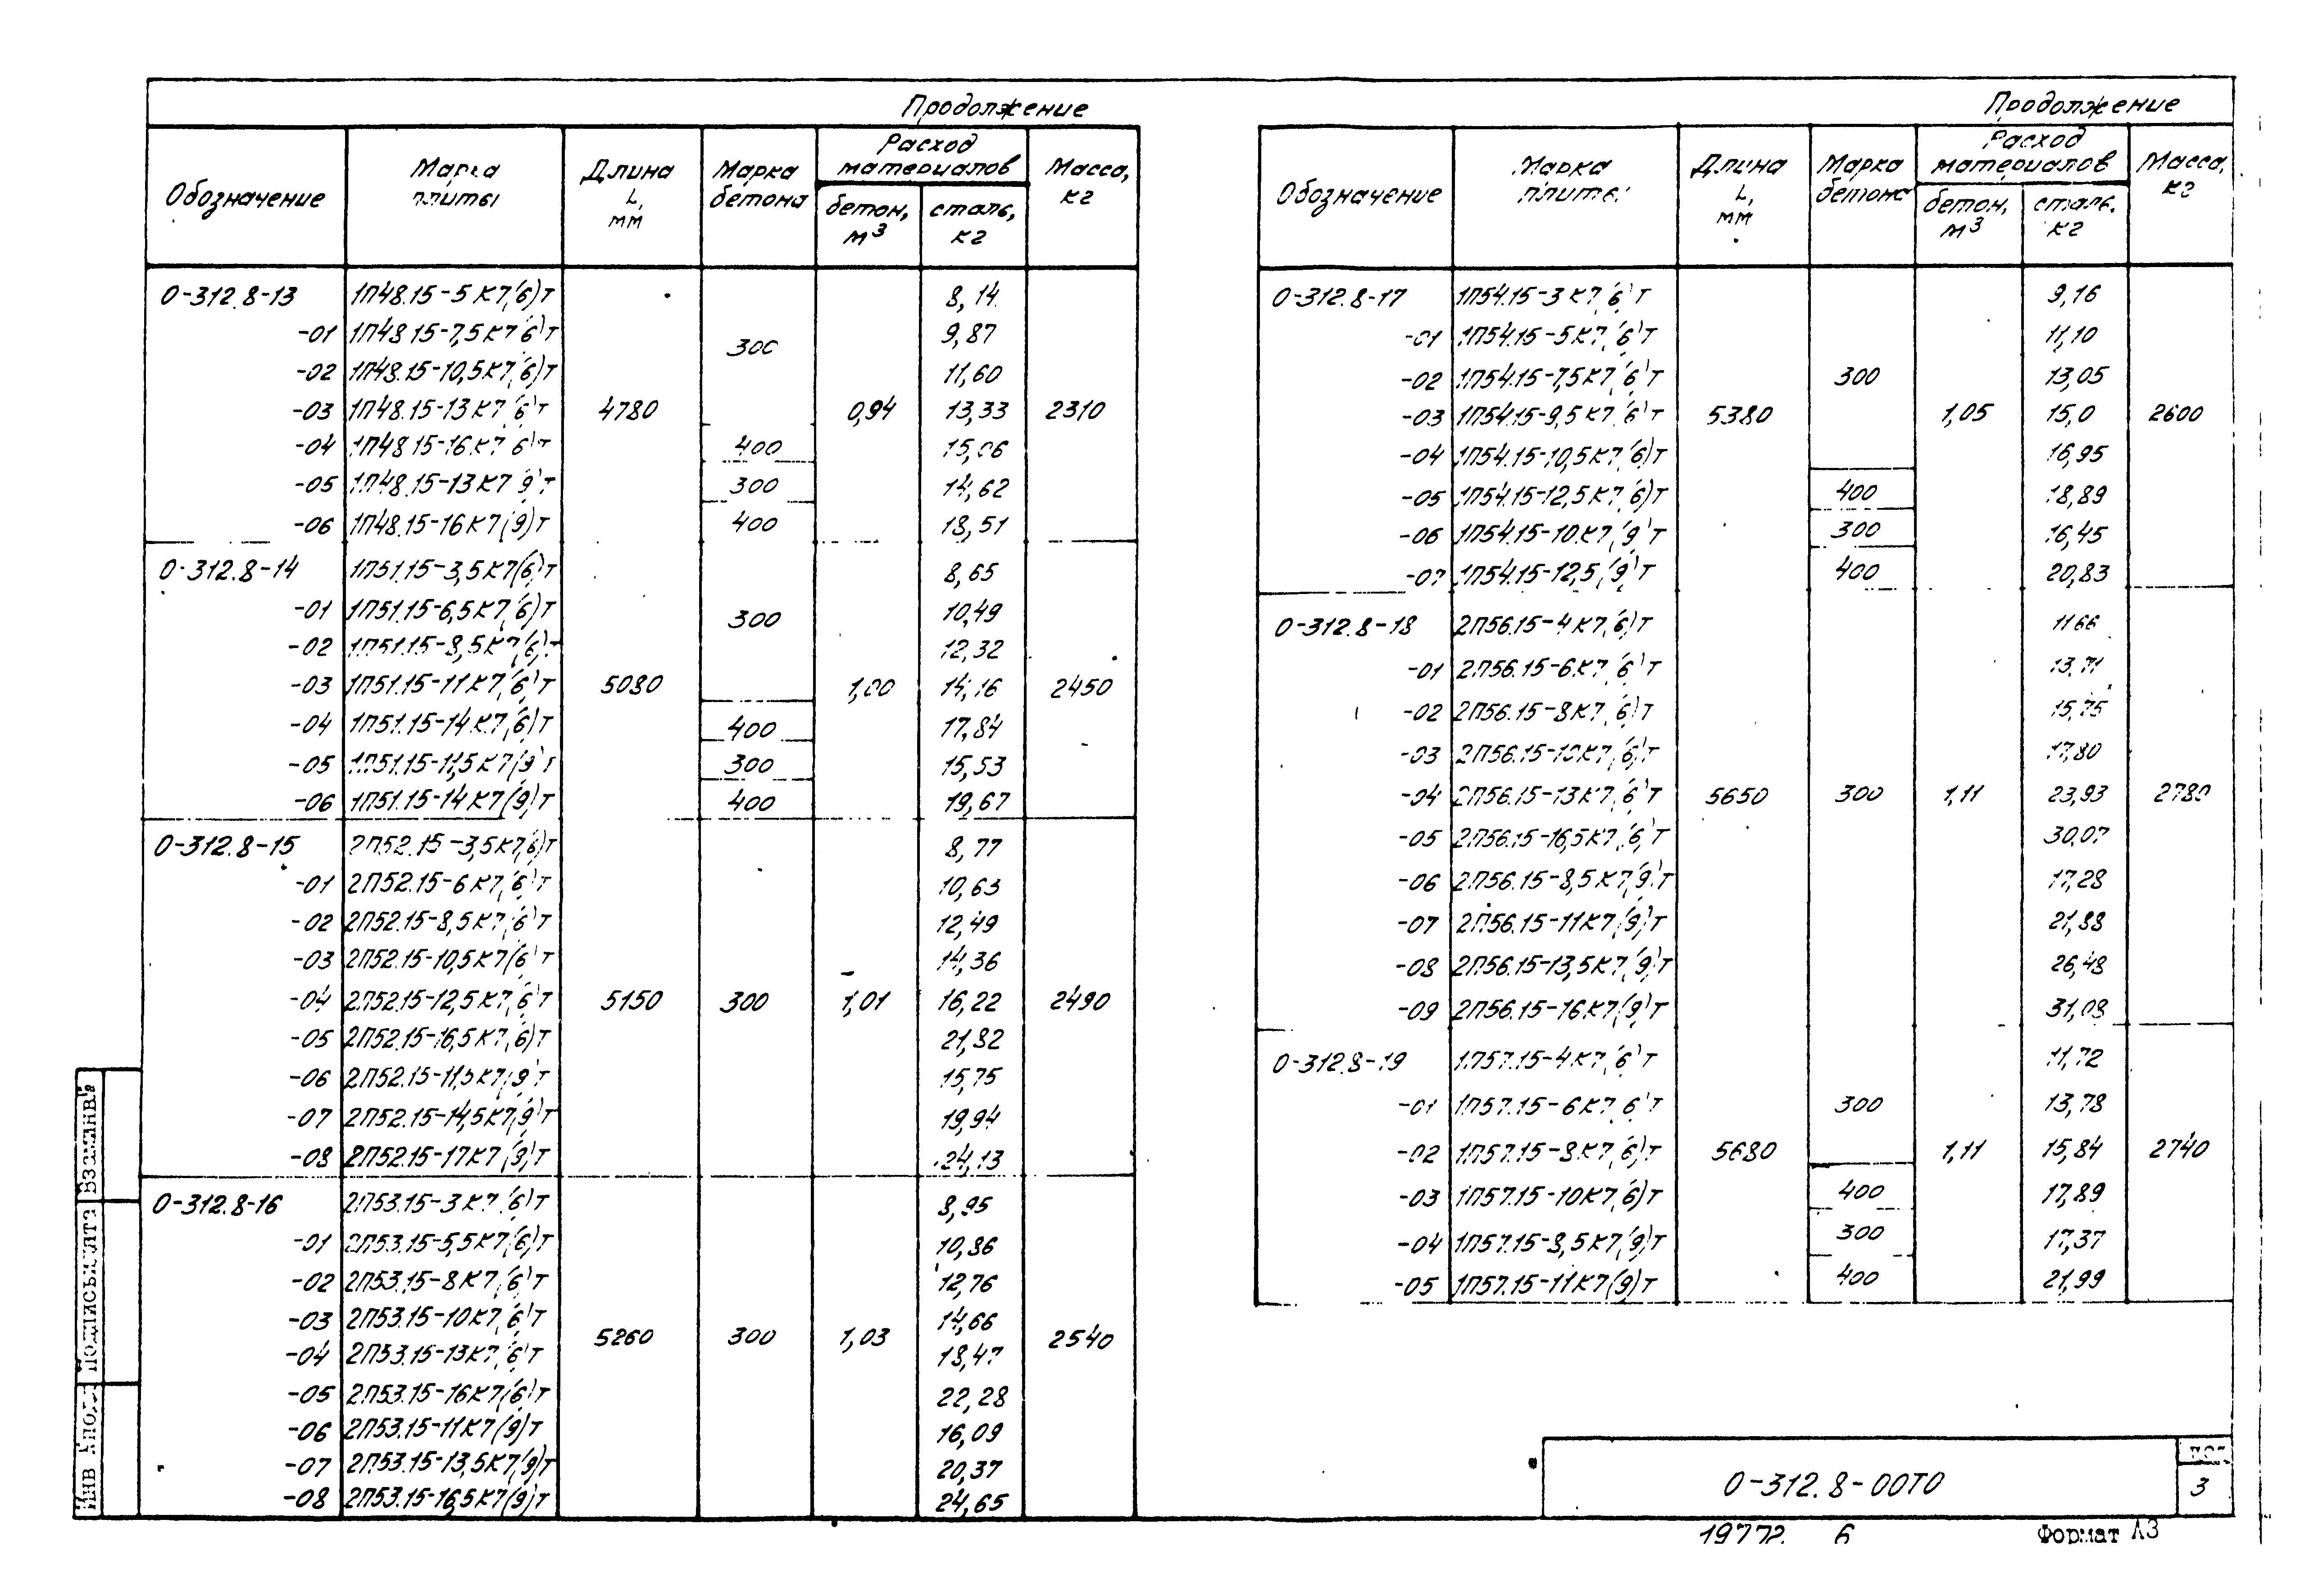 Продолжение
Обозначение Марка плиты Длина L, мм Марка бетона Расход материалов бетон, м³ сталь, кг Масса, кг
0-312.8-13 1П48.15-5К7(6)т 8,14
-01 1П48.15-7,5К7(6)т 300 9,87
-02 1П48.15-10,5К7(6)т 11,60
-03 1П48.15-13К7(6)т 4780 0,94 13,33 2310
-04 1П48.15-16К7(6)т 400 15,06
-05 1П48.15-13К7(9)т 300 14,62
-06 1П48.15-16К7(9)т 400 18,51
0-312.8-14 1П51.15-3,5К7(6)т 8,65
-01 1П51.15-6,5К7(6)т 300 10,49
-02 1П51.15-8,5К7(6)т 12,32
-03 1П51.15-11К7(6)т 5080 1,00 14,16 2450
-04 1П51.15-14К7(6)т 400 17,84
-05 1П51.15-11,5К7(9)т 300 15,53
-06 1П51.15-14К7(9)т 400 19,67
0-312.8-15 2П52.15-3,5К7(6)т 8,77
-01 2П52.15-6К7(6)т 10,63
-02 2П52.15-8,5К7(6)т 12,49
-03 2П52.15-10,5К7(6)т 14,36
-04 2П52.15-12,5К7(6)т 5150 300 1,01 16,22 2490
-05 2П52.15-16,5К7(6)т 21,82
-06 2П52.15-11,5К7(9)т 15,75
-07 2П52.15-14,5К7(9)т 19,94
-08 2П52.15-17К7(9)т 24,13
0-312.8-16 2П53.15-3К7(6)т 8,95
-01 2П53.15-5,5К7(6)т 10,86
-02 2П53.15-8К7(6)т 12,76
-03 2П53.15-10К7(6)т 14,66
5260 300 1,03 2540
-04 2П53.15-13К7(6)т 18,47
-05 2П53.15-16К7(6)т 22,28
-06 2П53.15-11К7(9)т 16,09
-07 2П53.15-13,5К7(9)т 20,37
-08 2П53.15-16,5К7(9)т 24,65
Продолжение
Обозначение Марка плиты Длина L, мм Марка бетона Расход материалов бетон, м³ сталь, кг Масса, кг
0-312.8-17 1П54.15-3К7(6)т 9,16
-01 1П54.15-5К7(6)т 11,10
-02 1П54.15-7,5К7(6)т 300 13,05
-03 1П54.15-9,5К7(6)т 5380 1,05 15,0 2600
-04 1П54.15-10,5К7(6)т 16,95
-05 1П54.15-12,5К7(6)т 400 18,89
-06 1П54.15-10К7(9)т 300 16,45
-07 1П54.15-12,5(9)т 400 20,83
0-312.8-18 2П56.15-4К7(6)т 11,66
-01 2П56.15-6К7(6)т 13,71
-02 2П56.15-8К7(6)т 15,75
-03 2П56.15-10К7(6)т 17,80
-04 2П56.15-13К7(6)т 5650 300 1,11 23,93 2780
-05 2П56.15-16,5К7(6)т 30,07
-06 2П56.15-8,5К7(9)т 17,28
-07 2П56.15-11К7(9)т 21,88
-08 2П56.15-13,5К7(9)т 26,48
-09 2П56.15-16К7(9)т 31,08
0-312.8-19 1П57.15-4К7(6)т 11,72
-01 1П57.15-6К7(6)т 300 13,78
-02 1П57.15-8К7(6)т 5680 1,11 15,84 2740
-03 1П57.15-10К7(6)т 400 17,89
-04 1П57.15-8,5К7(9)т 300 17,37
-05 1П57.15-11К7(9)т 400 21,99
0-312.8-00Т0
3
19772 6 Формат А3